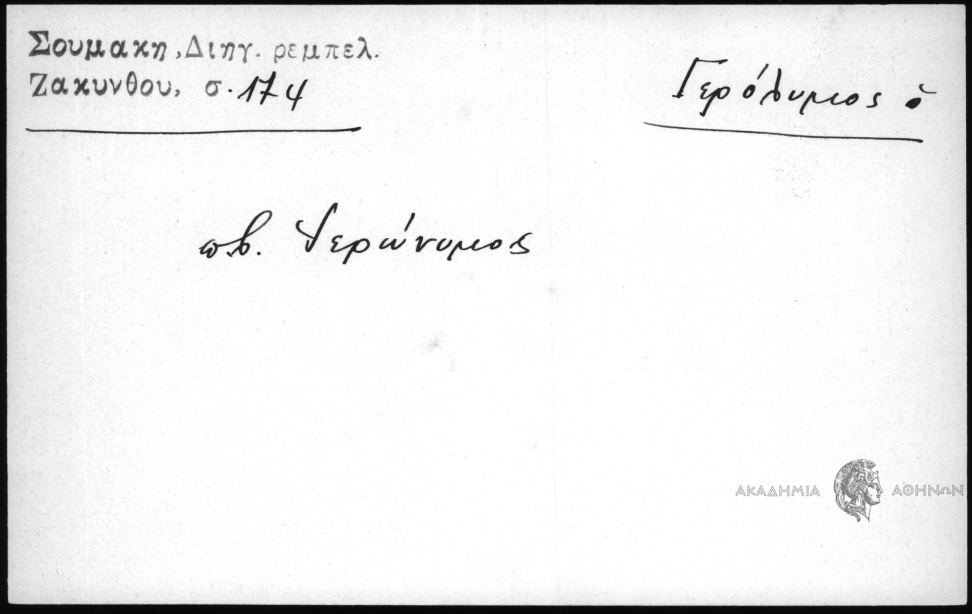 Σουμακη, Διηγ. ρεμπελ.
Ζακυνθου, σ. 174
Γερόλυμος ὁ
πβ. Ἱερώνυμος
ΑΚΑΔΗΜΙΑ ΑΘΗΝΩΝ